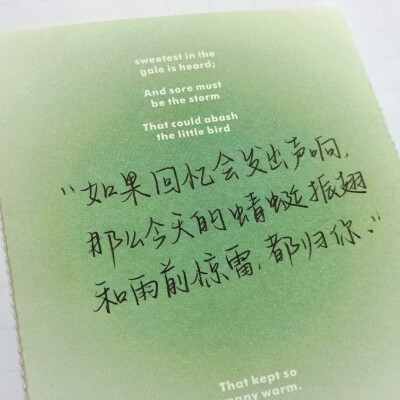 sweetest in the
gale is heard;
And sore must
be the storm
That could abash
the little bird
“如果回忆会发出声响，
那么今天的蜻蜓振翅
和雨前惊雷，都归你。”
That kept so
many warm.